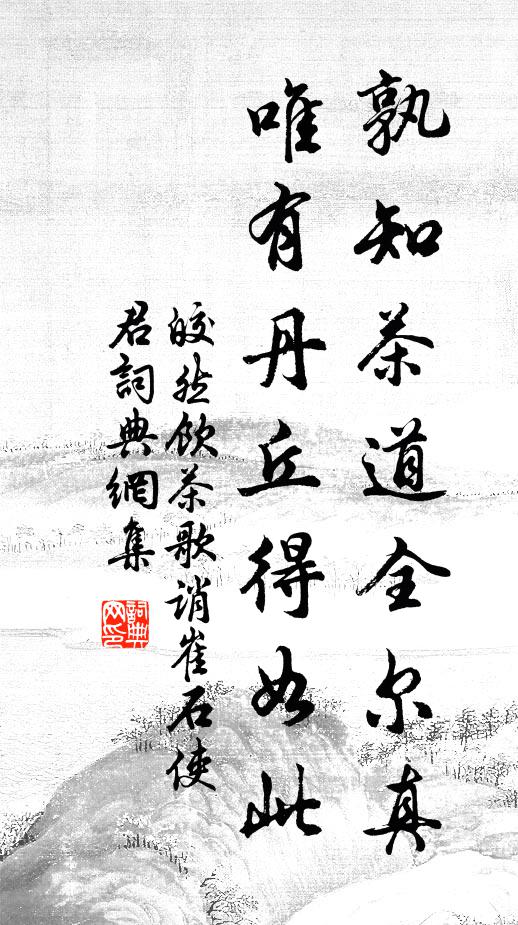 孰知茶道全尔真
唯有丹丘得如此
皎然飲茶歌誚崔石使
君詞典網集
詞典网印